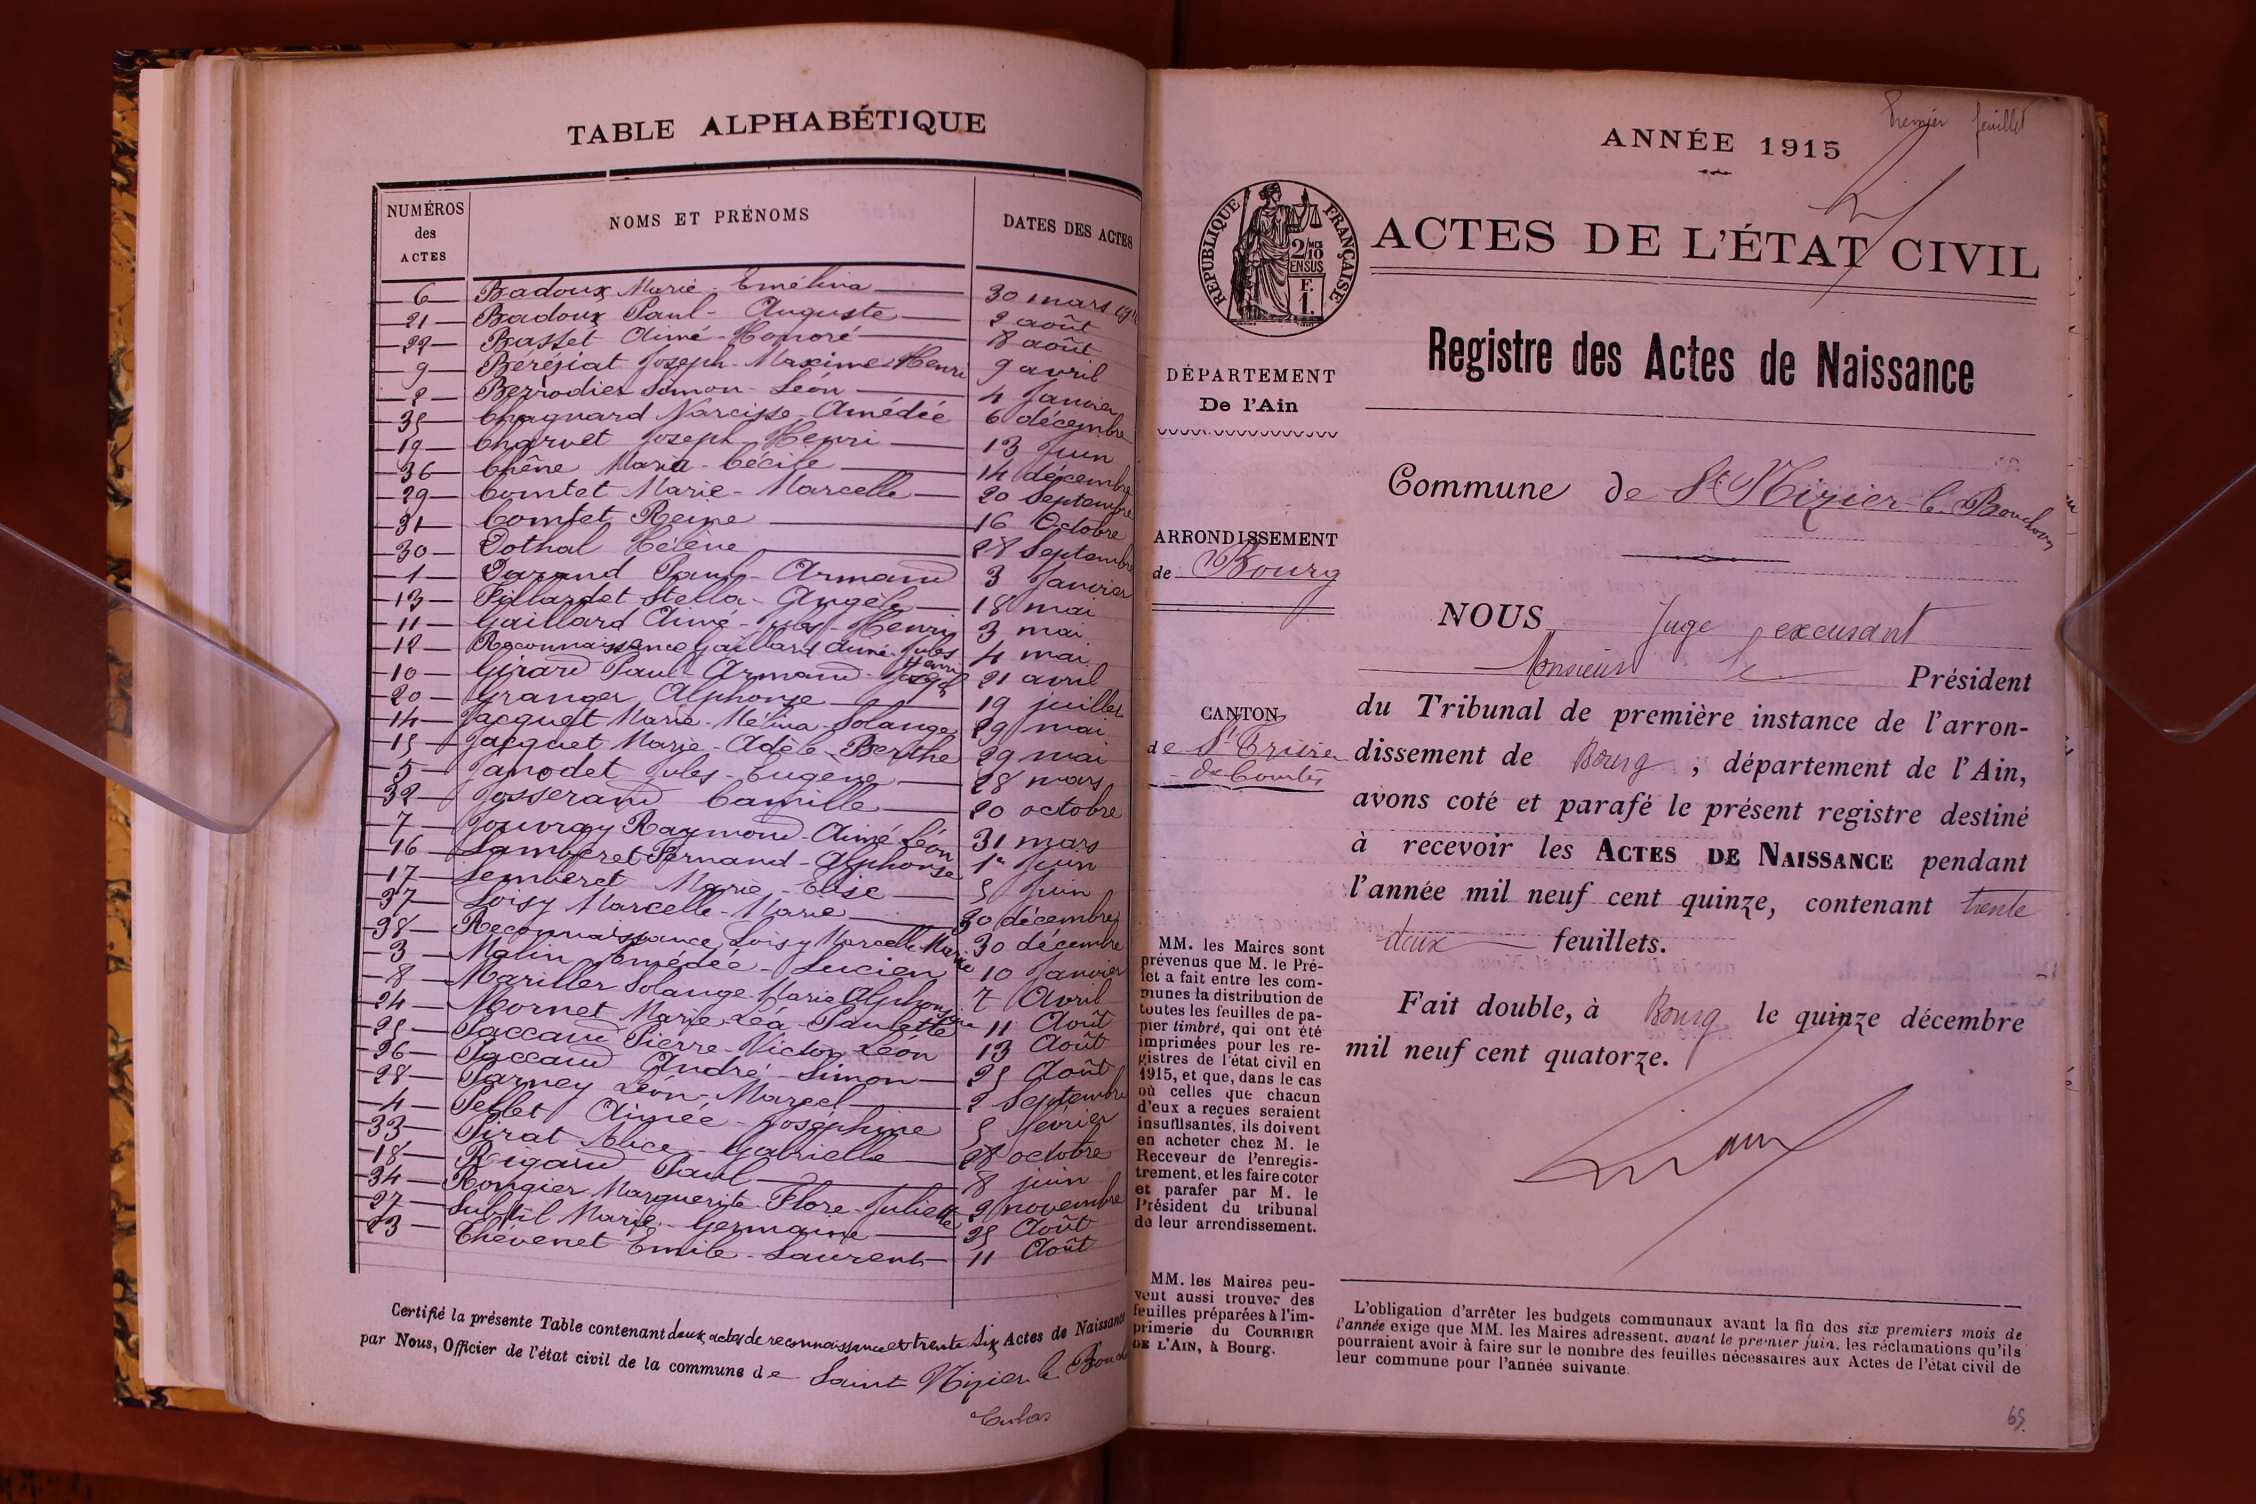 TABLE ALPHABÉTIQUE
NUMÉROS des ACTES NOMS ET PRÉNOMS DATES DES ACTES
6 Badoux Marie-Emélina 30 mars
21 Badoux Paul-Auguste 2 août
22 Basset Aimé-Honoré 8 août
9 Béréziat Joseph-Maxime-Henri 9 avril
2 Berrodier Simon-Léon 4 Janvier
35 Chagnard Narcisse-Amédée 6 décembre
19 Charvet Joseph Henri 13 Juin
36 Chêne Maria-Cécile 14 décembre
29 Comtet Marie-Marcelle 20 Septembre
31 Comtet Reine 16 Octobre
30 Dothal Hélène 28 Septembre
1 Durand Paul-Armand 3 Janvier
13 Fillardet Stella-Angèle 18 mai
11 Gaillard Aimé-Jules-Henri 3 mai
12 Reconnaissance Gaillard Aimé-Jules Henri 4 mai
10 Girard Paul-Armand-Joseph 21 avril
20 Granger Alphonse 19 juillet
14 Jacquet Marie-Mélina-Solange 29 mai
15 Jacquet Marie-Adèle-Berthe 29 mai
5 Janodet Jules-Eugène 28 mars
32 Josserand Camille 20 octobre
7 Jouvray Raymond-Aimé Léon 31 mars
16 Lamberet Fernand-Alphonse 1er Juin
17 Lemberet Marie-Elise 5 Juin
37 Loisy Marcelle-Marie 30 décembre
38 Reconnaissance Loisy Marcelle Marie 30 décembre
3 Malin Amédée-Lucien 10 Janvier
8 Mariller Solange-Marie Alphonsine 7 Avril
24 Mornet Marie-Léa-Paulette 11 Août
25 Paccaud Pierre-Victor-Léon 13 Août
26 Paccaud André-Simon 25 Août
28 Parney Léon-Marcel 2 Septembre
4 Pellet Aimée-Joséphine 5 février
33 Pirat Alice-Gabrielle 28 octobre
18 Rigaud Paul 8 juin
34 Rongier Marguerite-Flore-Juliette 2 novembre
27 Subtil Marie-Germaine 25 Août
23 Thévenet Emile-Laurent 11 Août
Certifié la présente Table contenant deux actes de reconnaissance et trente six Actes de Naissance
par Nous, Officier de l'état civil de la commune de Saint Nizier le Bouch
Premier feuillet
ANNÉE 1915
RÉPUBLIQUE FRANÇAISE
2/10 EN SUS
F. 1.
ACTES DE L'ÉTAT CIVIL
Registre des Actes de Naissance
DÉPARTEMENT
De l'Ain
Commune de St Nizier-le-Bouchoux
ARRONDISSEMENT
de Bourg
CANTON
de St Trivier
de Courtes
NOUS Juge excusant
Monsieur le Président
du Tribunal de première instance de l'arron-
dissement de Bourg, département de l'Ain,
avons coté et parafé le présent registre destiné
à recevoir les ACTES DE NAISSANCE pendant
l'année mil neuf cent quinze, contenant trente
deux feuillets.
Fait double, à Bourg le quinze décembre
mil neuf cent quatorze.
MM. les Maires sont
prévenus que M. le Pré-
fet a fait entre les com-
munes la distribution de
toutes les feuilles de pa-
pier timbré, qui ont été
imprimées pour les re-
gistres de l'état civil en
1915, et que, dans le cas
où celles que chacun
d'eux a reçues seraient
insuffisantes, ils doivent
en acheter chez M. le
Receveur de l'enregis-
trement, et les faire coter
et parafer par M. le
Président du tribunal
de leur arrondissement.
MM. les Maires peu-
vent aussi trouver des
feuilles préparées à l'im-
primerie du COURRIER
DE L'AIN, à Bourg.
L'obligation d'arrêter les budgets communaux avant la fin des six premiers mois de
l'année exige que MM. les Maires adressent, avant le premier juin, les réclamations qu'ils
pourraient avoir à faire sur le nombre des feuilles nécessaires aux Actes de l'état civil de
leur commune pour l'année suivante.
65